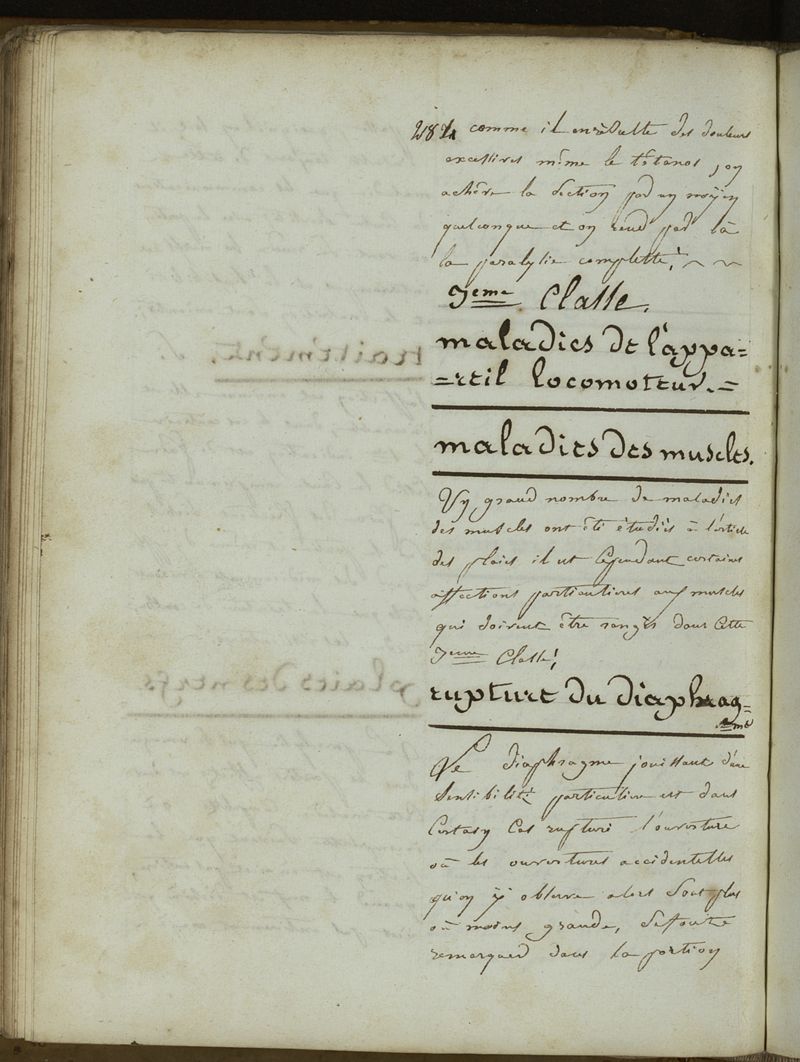 284 comme il en résulte des douleurs
excessives même le tétanos, on
achève la section par un moÿen
quelconque et on rend par là
la paralysie complette! ~ ~
7eme Classe.
maladies de l'appa=
=reil locomoteur. =
maladies des muscles.
Un grand nombre de maladies
des muscles ont été étudiés à l'article
des plaies il est cependant certaines
affections particulieres aux muscles
qui doivent être rangés dans cette
7eme Classe!
rupture du diaphrag=
=me
Le diaphragme jouissant d'une
sensibilité particuliere est dans
Certain Cas rupturé l'ouverture
où les ouvertures accidentelles
qu'on ÿ observe alors sont plus
où moins grande,
remarquer dans la portion